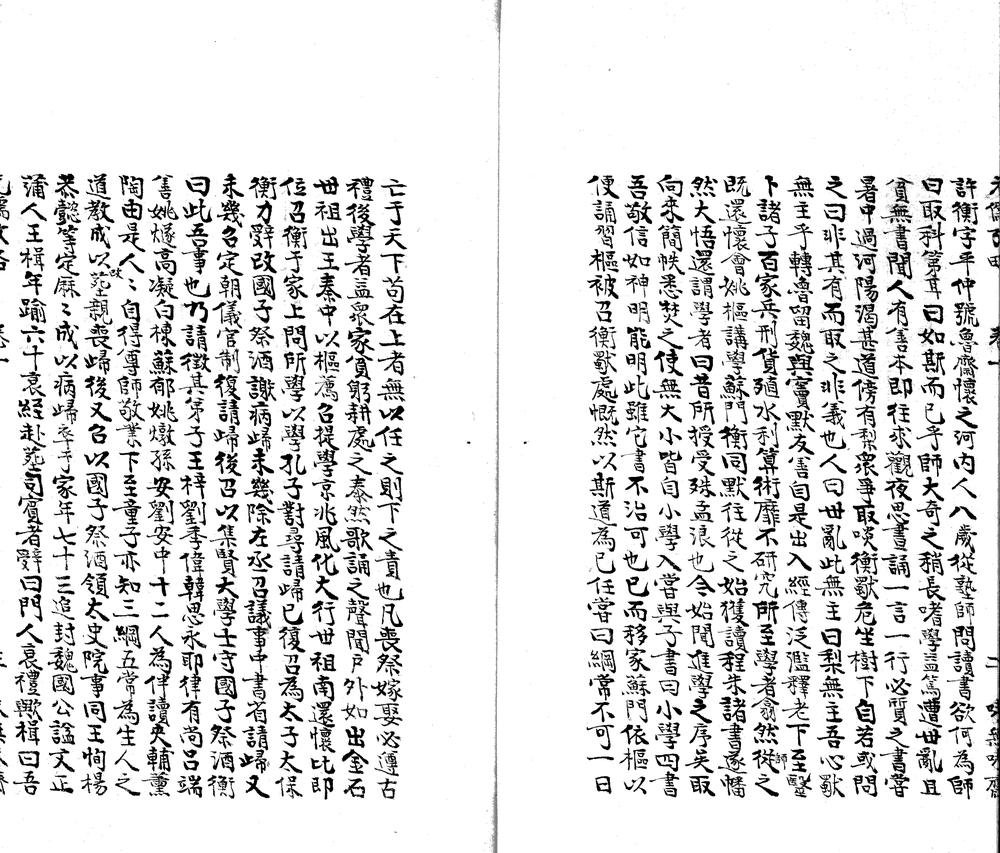 許衡字平仲號魯齋懷之河內人八歲從塾師問讀書欲何為師
曰取科第耳曰如斯而已乎師大奇之稍長嗜學益篤遭世亂且
貧無書聞人有善本即往求觀夜思晝誦一言一行必質之書嘗
暑中過河陽渴甚道傍有梨衆爭取啖衡獨危坐樹下自若或問
之曰非其有而取之非義也人曰世亂此無主曰梨無主吾心獨
無主乎轉魯留魏與竇默友善自是出入經傳泛濫釋老下至醫
卜諸子百家兵刑貨殖水利算術靡不研究所至學者翕然從之師
既還懷會姚樞講學蘇門衡同默往從之始獲讀程朱諸書遂幡
然大悟還謂學者曰昔所授受殊孟浪也今始聞進學之序矣取
向來簡帙悉焚之使無大小皆自小學入嘗與子書曰小學四書
吾敬信如神明能明此雖它書不治可也已而移家蘇門依樞以
便誦習樞被召衡獨處慨然以斯道為己任嘗曰綱常不可一日
亡于天下苟在上者無以任之則下之責也凡喪祭嫁娶必遵古
禮後學者益衆家貧躬耕處之泰然歌誦之聲聞戶外如出金石
世祖出王秦中以樞薦召提學京兆風化大行世祖南還懷比即
位召衡于家上問所學以學孔子對尋請歸已復召為太子太保
衡力辭改國子祭酒謝病歸未幾除左丞召議事中書省請歸又
未幾召定朝儀官制復請歸後召以集賢大學士守國子祭酒衡
曰此吾事也乃請徵其弟子王梓劉季偉韓思永耶律有尚呂端
善姚燧高凝白棟蘇郁姚燉孫安劉安中十二人為伴讀夾輔薰
陶由是人人自得尊師敬業下至童子亦知三綱五常為生人之
道教成以塟親喪歸後又召以國子祭酒領太史院事同王恂楊
恭懿等定厤〻成以病歸卒于家年七十三追封魏國公諡文正
蒲人王楫年踰六十衰絰赴塟司賓者辭曰門人衰禮歟楫曰吾